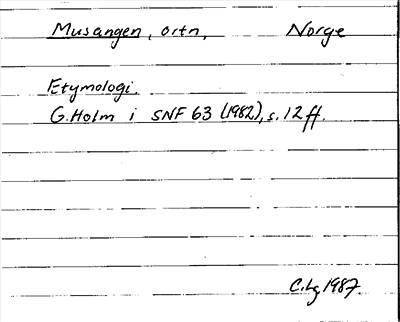 Musangen, ortn, Norge
Etymologi.
G. Holm i SNF 63 (1982), s. 12 ff.
C.Lg 1987.